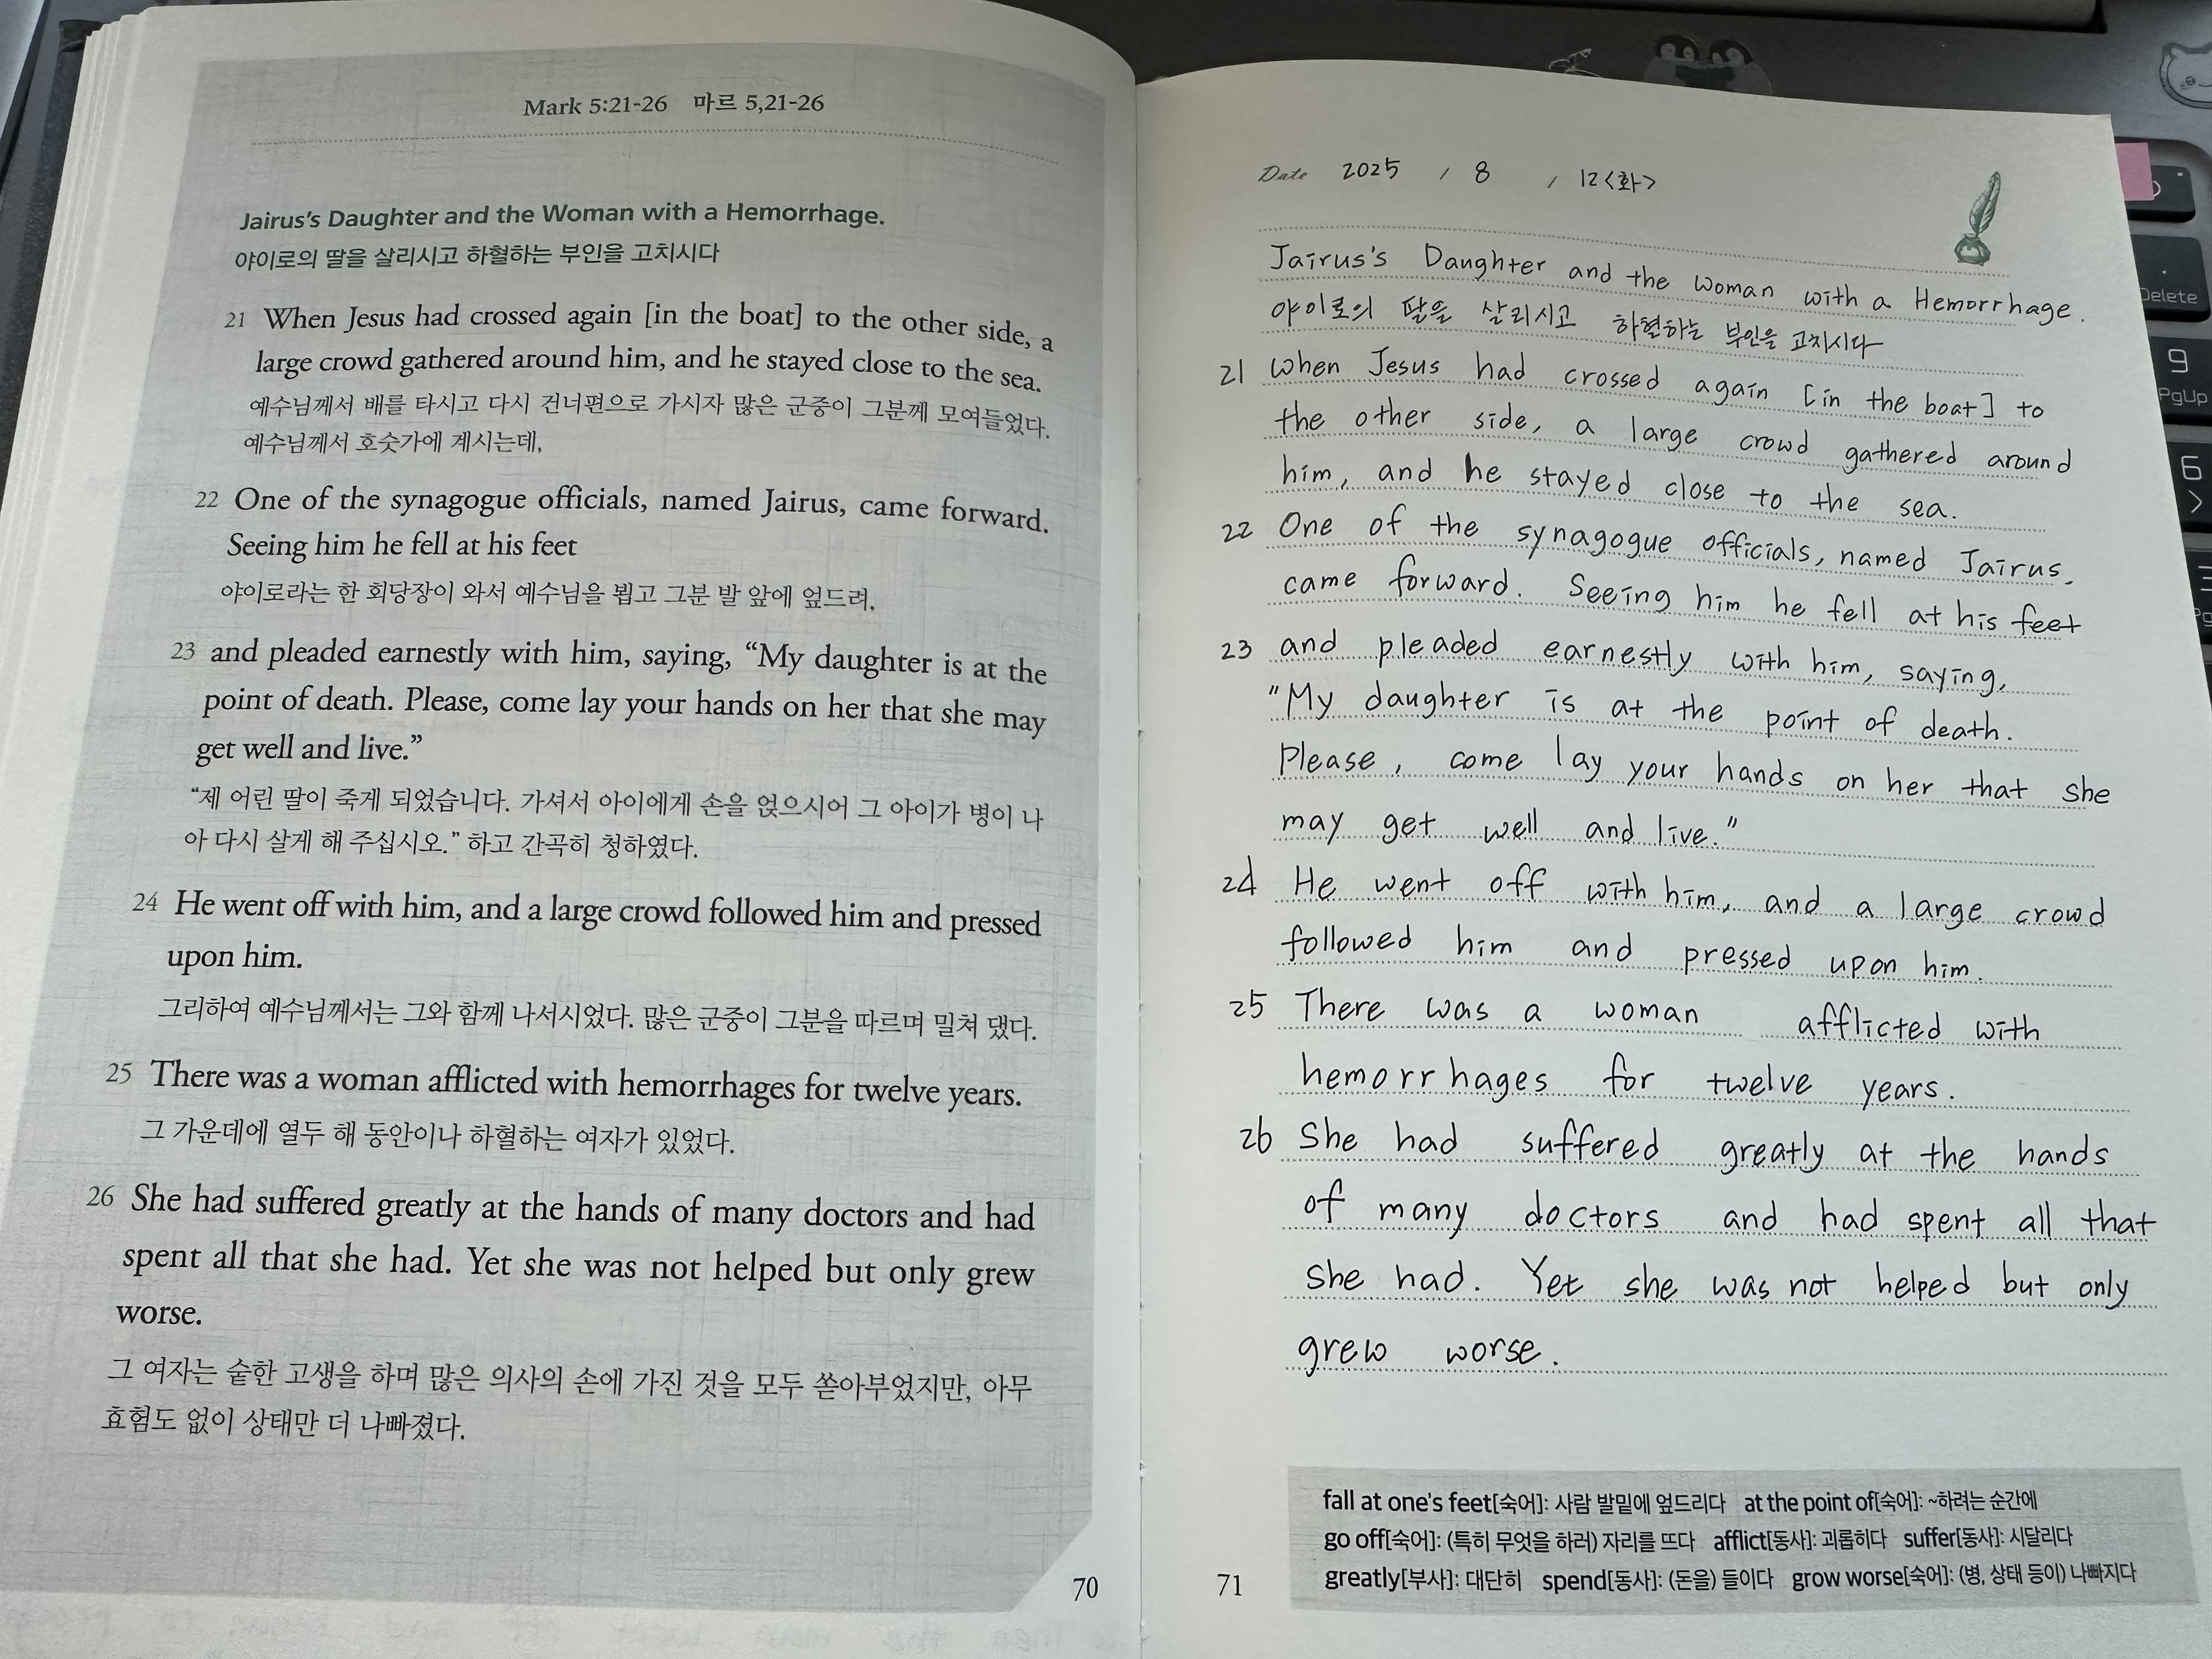 Mark 5:21-26 마르 5,21-26
Jairus's Daughter and the Woman with a Hemorrhage.
야이로의 딸을 살리시고 하혈하는 부인을 고치시다
21 When Jesus had crossed again [in the boat] to the other side, a
large crowd gathered around him, and he stayed close to the sea.
예수님께서 배를 타시고 다시 건너편으로 가시자 많은 군중이 그분께 모여들었다.
예수님께서 호숫가에 계시는데,
22 One of the synagogue officials, named Jairus, came forward.
Seeing him he fell at his feet
야이로라는 한 회당장이 와서 예수님을 뵙고 그분 발 앞에 엎드려,
23 and pleaded earnestly with him, saying, “My daughter is at the
point of death. Please, come lay your hands on her that she may
get well and live.”
“제 어린 딸이 죽게 되었습니다. 가셔서 아이에게 손을 얹으시어 그 아이가 병이 나
아 다시 살게 해 주십시오.” 하고 간곡히 청하였다.
24 He went off with him, and a large crowd followed him and pressed
upon him.
그리하여 예수님께서는 그와 함께 나서시었다. 많은 군중이 그분을 따르며 밀쳐 댔다.
25 There was a woman afflicted with hemorrhages for twelve years.
그 가운데에 열두 해 동안이나 하혈하는 여자가 있었다.
26 She had suffered greatly at the hands of many doctors and had
spent all that she had. Yet she was not helped but only grew
worse.
그 여자는 숱한 고생을 하며 많은 의사의 손에 가진 것을 모두 쏟아부었지만, 아무
효험도 없이 상태만 더 나빠졌다.
70
Date 2025 / 8 / 12<화>
Jairus's Daughter and the Woman with a Hemorrhage.
야이로의 딸을 살리시고 하혈하는 부인을 고치시다
21 When Jesus had crossed again [in the boat] to
the other side, a large crowd gathered around
him, and he stayed close to the sea.
22 One of the synagogue officials, named Jairus,
came forward. Seeing him he fell at his feet
23 and pleaded earnestly with him, saying,
"My daughter is at the point of death.
Please, come lay your hands on her that she
may get well and live."
24 He went off with him, and a large crowd
followed him and pressed upon him.
25 There was a woman afflicted with
hemorrhages for twelve years.
26 She had suffered greatly at the hands
of many doctors and had spent all that
she had. Yet she was not helped but only
grew worse.
fall at one's feet[숙어]: 사람 발밑에 엎드리다 at the point of[숙어]: ~하려는 순간에
go off[숙어]: (특히 무엇을 하러) 자리를 뜨다 afflict[동사]: 괴롭히다 suffer[동사]: 시달리다
greatly[부사]: 대단히 spend[동사]: (돈을) 들이다 grow worse[숙어]: (병, 상태 등이) 나빠지다
71
Delete
9
PgUp
6
>